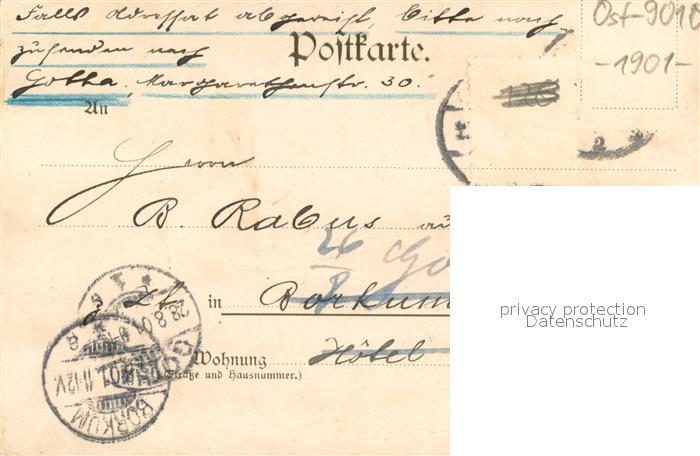 Falls Adressat abgereist, bitte nach
zusenden nach
Postkarte.
Gotha, Margarethenstr. 30.
Ost-9010
-1901-
An
Herrn
B. Rabus au
26
8
Go
z. Zt. in Borkum
Wohnung Hôtel
(Straße und Hausnummer.)
28.8.01
BORKUM
11-12V.
privacy protection
Datenschutz